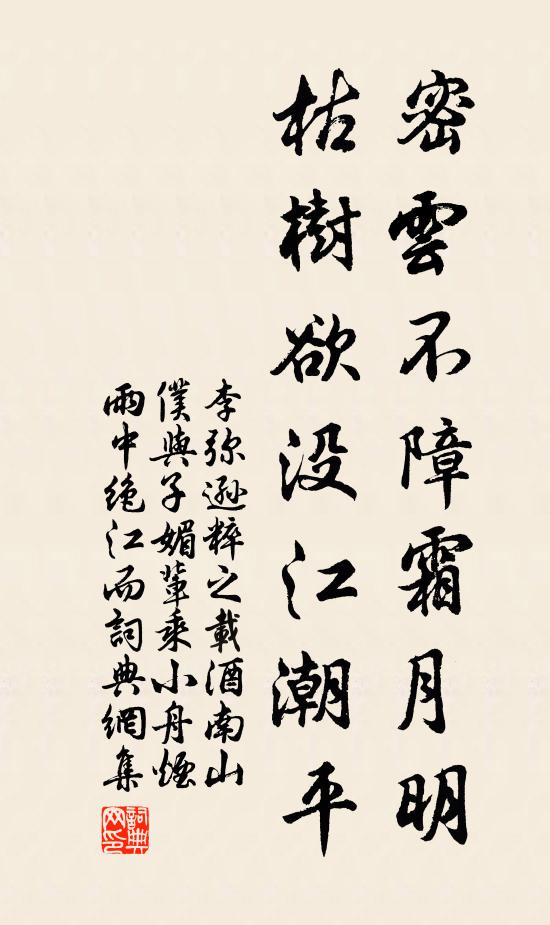 密雲不障霜月明
枯樹欲没江潮平
李弥遜粹之載酒南山
僕與子媚輩乘小舟煙
雨中绝江而詞典網集
詞典
网印